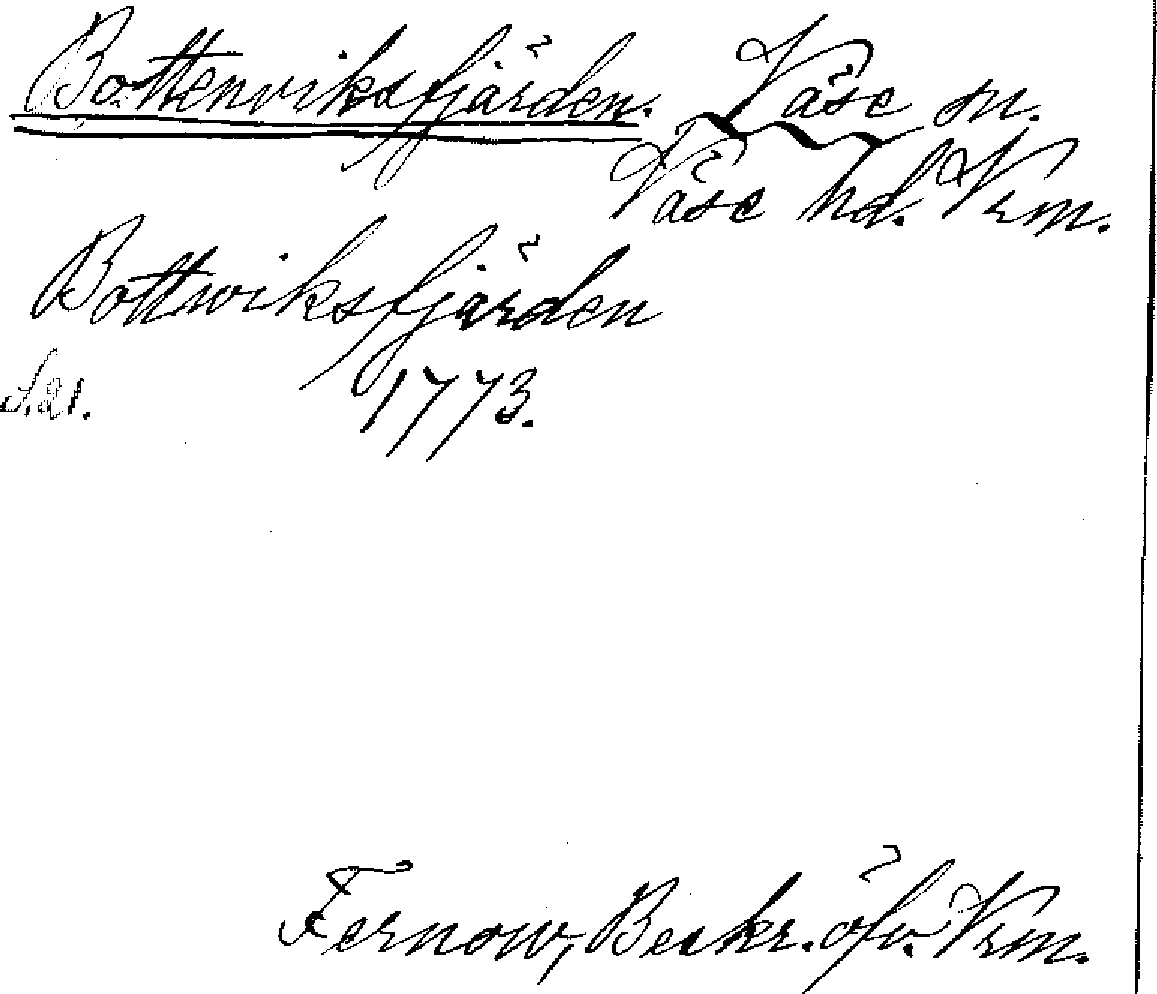 Bottenviksfjärden. Väse sn.
Väse hd. Vrm.
Bottwiksfjärden
1773.
S. 21.
Fernow, Beskr. öfv. Vrm.